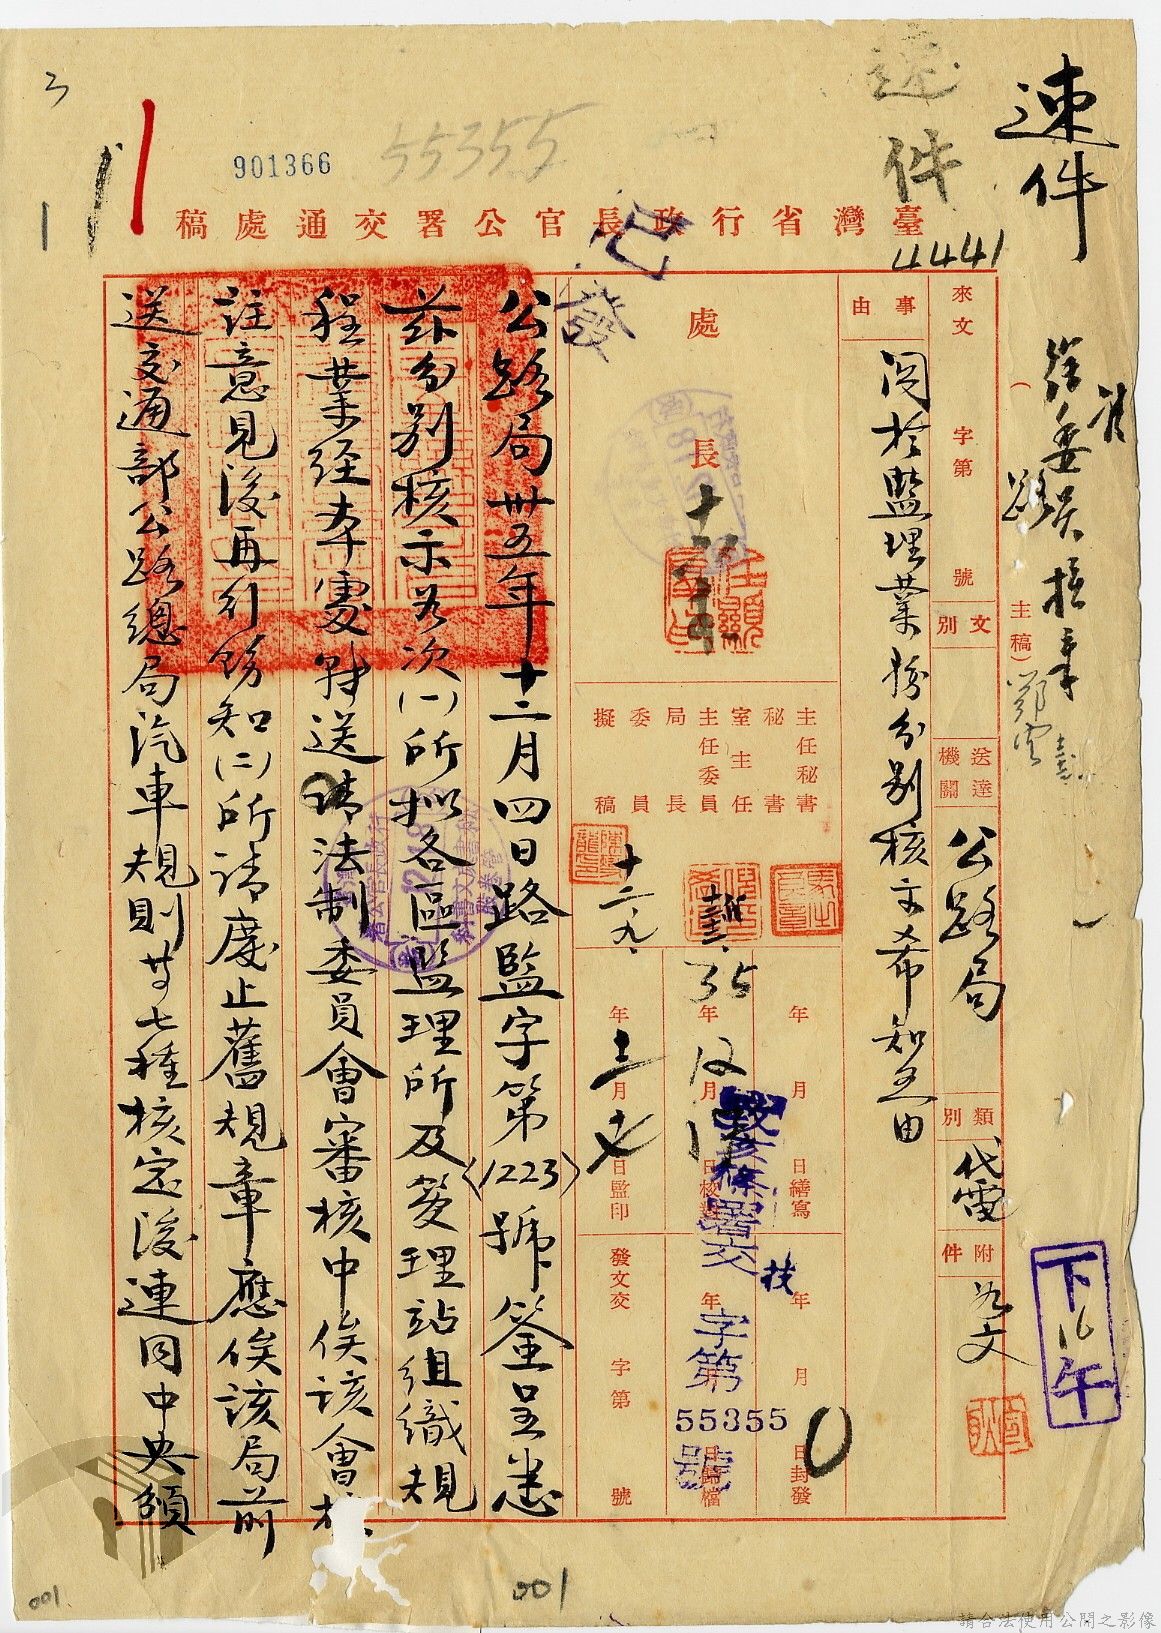 速件
速件
3
901366
55355
臺灣省行政長官公署交通處稿
已發
4441
來文
字第
號
文別
送達機關
公路局
類別
代電
附件
事由
關於監理業務分別核示希知照由
主稿
處長
主任秘書
秘書
室主任
主任委員
局長
委員
擬稿
十二九
35
12
年
月
日繕寫
年
月
日校對
年
月
日監印
年
月
日封發
年
日歸檔
發文交
字第
號
署交
字第
55355
號
下午
公路局卅五年十二月四日路監字第(1223)號簽呈悉
茲分別核示如次(一)所擬各區監理所及管理站組織規
程業經本處轉送請法制委員會審核中俟該會核
註意見後再行飭知(二)所請廢止舊規章應俟該局前
送交通部公路總局汽車規則等七種核定後連同中央頒
001
001
請合法使用公開之影像